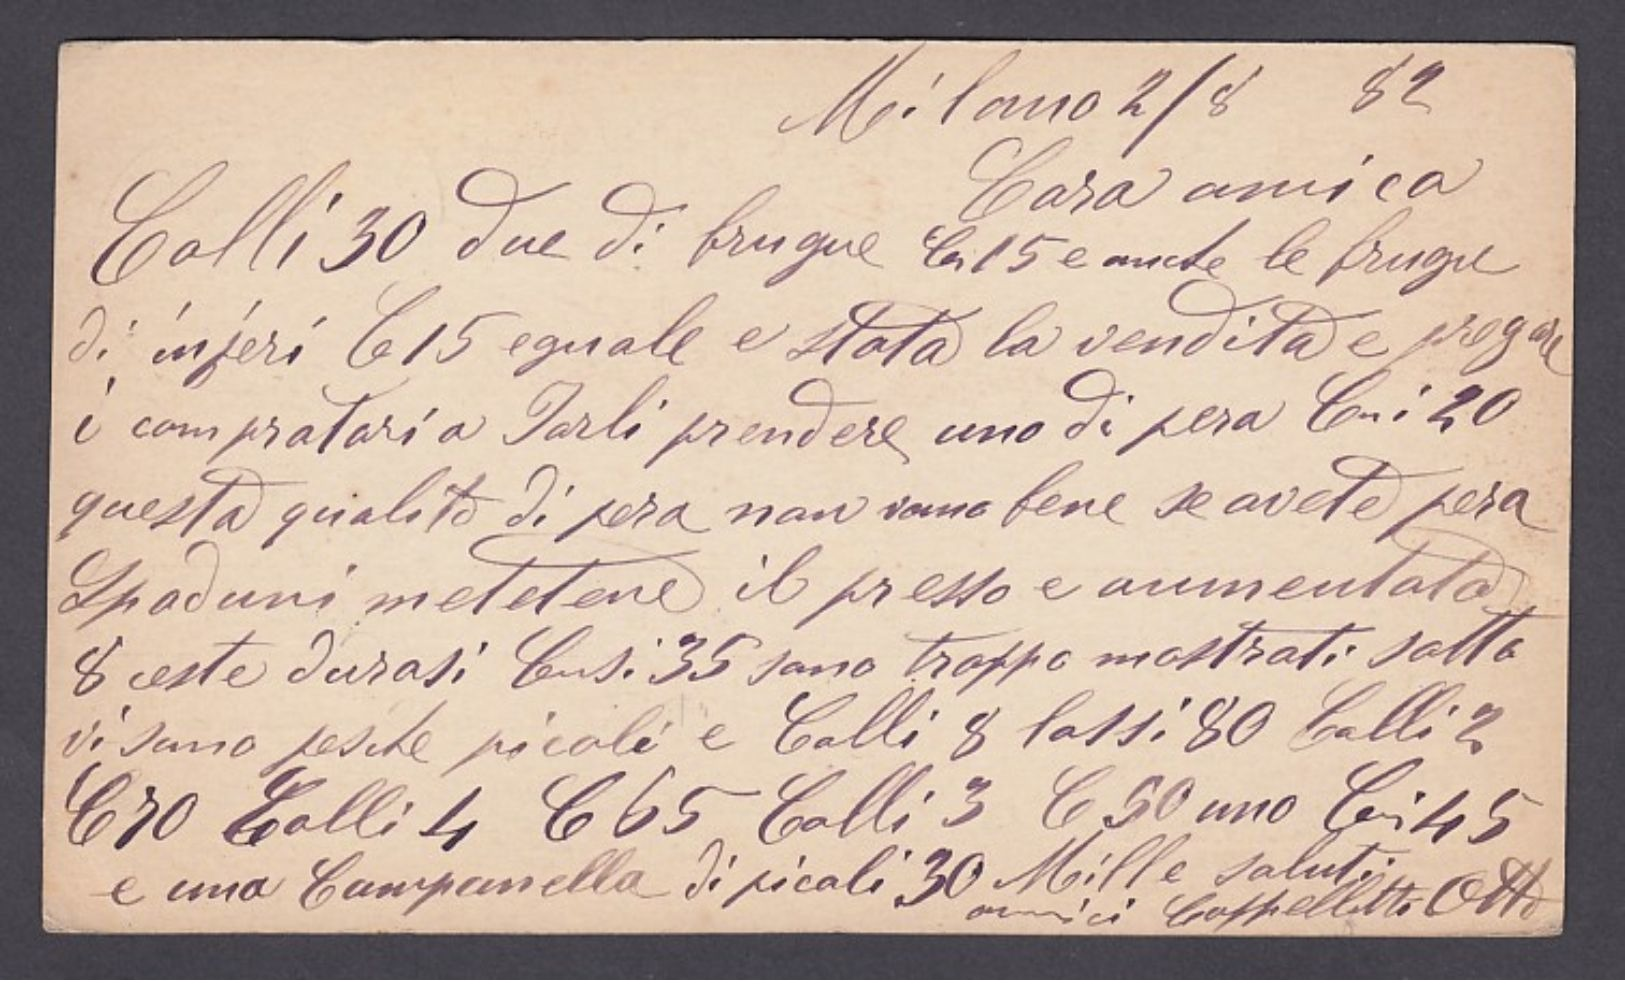 Milano 2/8 82
Cara amica
Colli 30 due di brugne Cni 15 e anche le brugne
di inferi C 15 eguale e stata la vendita e pregare
i compratori a Farli prendere uno di pera Cni 20
questa qualita di pera non vano bene se avete pera
Spaduni metetene il presso e aumentata
8 ceste durasi Cnsi 35 sono troppo mostrati sotto
vi sono pesche picoli e Colli 8 lassi 80 Colli 2
C 70 Colli 4 C 65 Colli 3 C 50 uno Cni 45
e una Campanella di picoli 30 Mille saluti
amici Cappelletti Otto